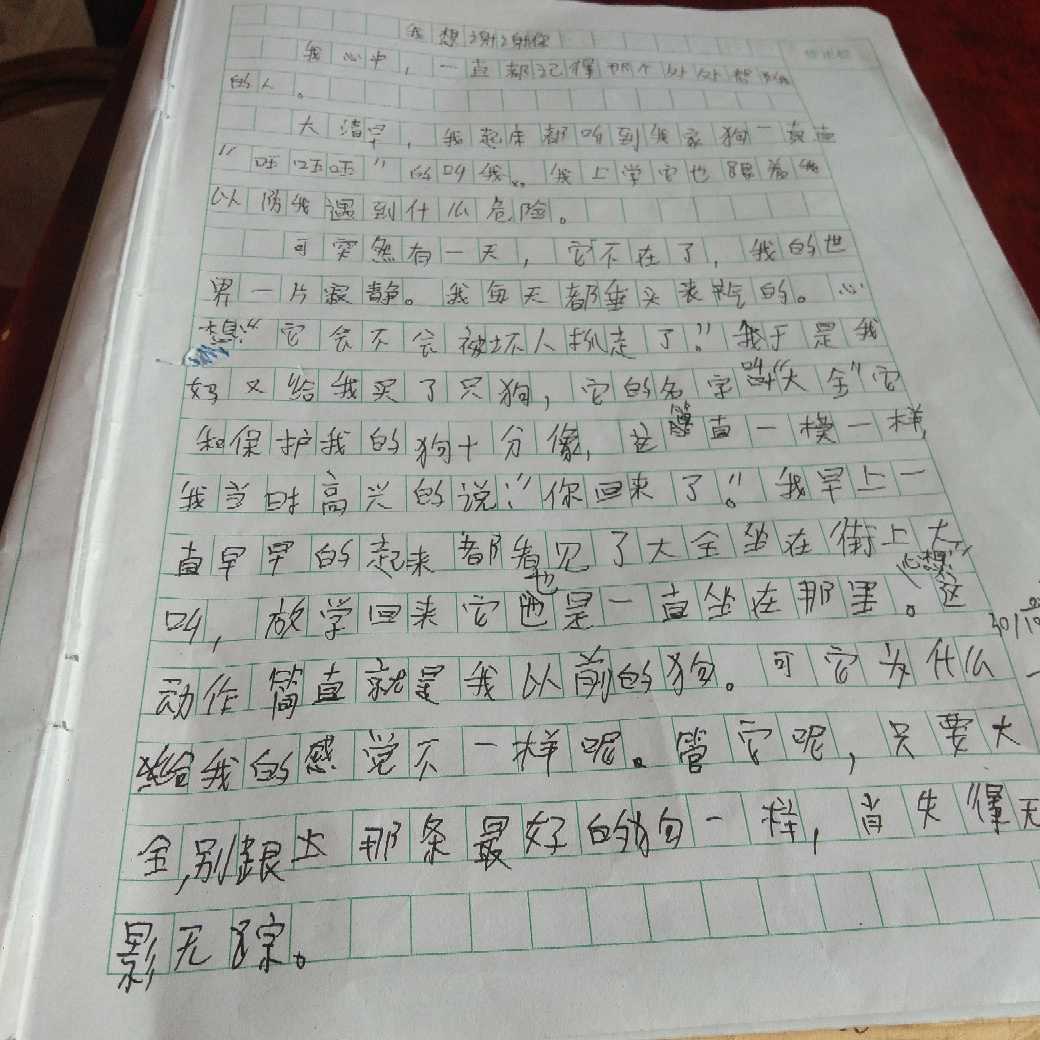 我想谢谢你
我心中，一直都记得那个处处帮助
的人。
大清早，我起床都听到我家狗一直在
“旺旺旺”的叫我。我上学它也跟着我
以防我遇到什么危险。
可突然有一天，它不在了，我的世
界一片寂静。我每天都垂头丧气的。心
想：“它会不会被坏人抓走了！”我于是我
妈又给我买了只狗，它的名字叫“大全”它
和保护我的狗十分像，这简直一模一样，
我当时高兴的说：“你回来了”。我早上一
直早早的起来都看见了大全坐在街上大
叫，放学回来它也是一直坐在那里。心想“这
动作简直就是我以前的狗。可它为什么
给我的感觉不一样呢。管它呢，只要大
全，别跟上那条最好的狗一样，肖失得无
影无踪。
30/10